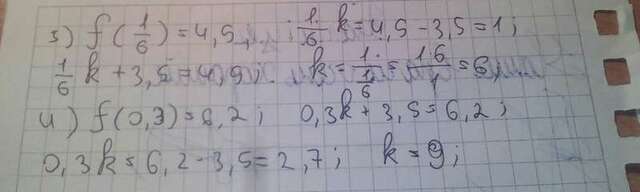 з) f(1/6) = 4,5; 1/6 k = 4,5 - 3,5 = 1;
1/6 k + 3,5 = 4,5; k = 1/(1/6) = 1·6/1 = 6;
и) f(0,3) = 6,2; 0,3k + 3,5 = 6,2;
0,3k = 6,2 - 3,5 = 2,7; k = 9;